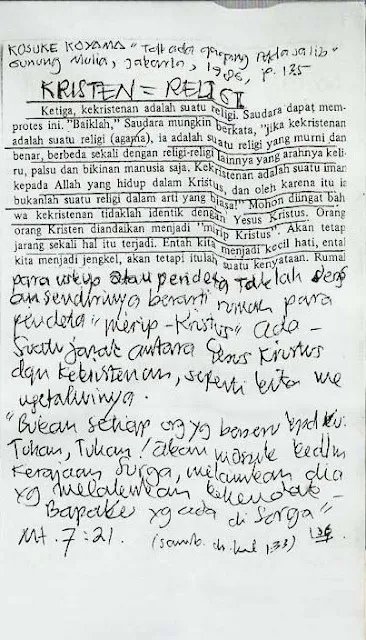 KOSUKE KOYAMA "Tak ada gagang pada salib"
Gunung Mulia, Jakarta, 1986, p. 135
KRISTEN = RELIGI
Ketiga, kekristenan adalah suatu religi. Saudara dapat mem-
protes ini. "Baiklah," Saudara mungkin berkata, "jika kekristenan
adalah suatu religi (agama), ia adalah suatu religi yang murni dan
benar, berbeda sekali dengan religi-religi lainnya yang arahnya keli-
ru, palsu dan bikinan manusia saja. Kekristenan adalah suatu iman
kepada Allah yang hidup dalam Kristus, dan oleh karena itu ia
bukanlah suatu religi dalam arti yang biasa!" Mohon diingat bah
wa kekristenan tidaklah identik dengan Yesus Kristus. Orang
orang Kristen diandaikan menjadi "mirip Kristus". Akan tetap
jarang sekali hal itu terjadi. Entah kita menjadi kecil hati, ental
kita menjadi jengkel, akan tetapi itulah suatu kenyataan. Rumal
para uskup atau pendeta taklah deng
an sendirinya berarti rumah para
pendeta "mirip-Kristus" Ada
suatu jarak antara Yesus Kristus
dan kekristenan, seperti kita me
ngetahuinya.
"Bukan setiap org yg berseru kpd Ku:
Tuhan, Tuhan! akan masuk ke dlm
Kerajaan Surga, melainkan dia
yg melakukan kehendak
Bapaku yg ada di Sorga"
Mt. 7:21. (samb. dr. hal 133) 136